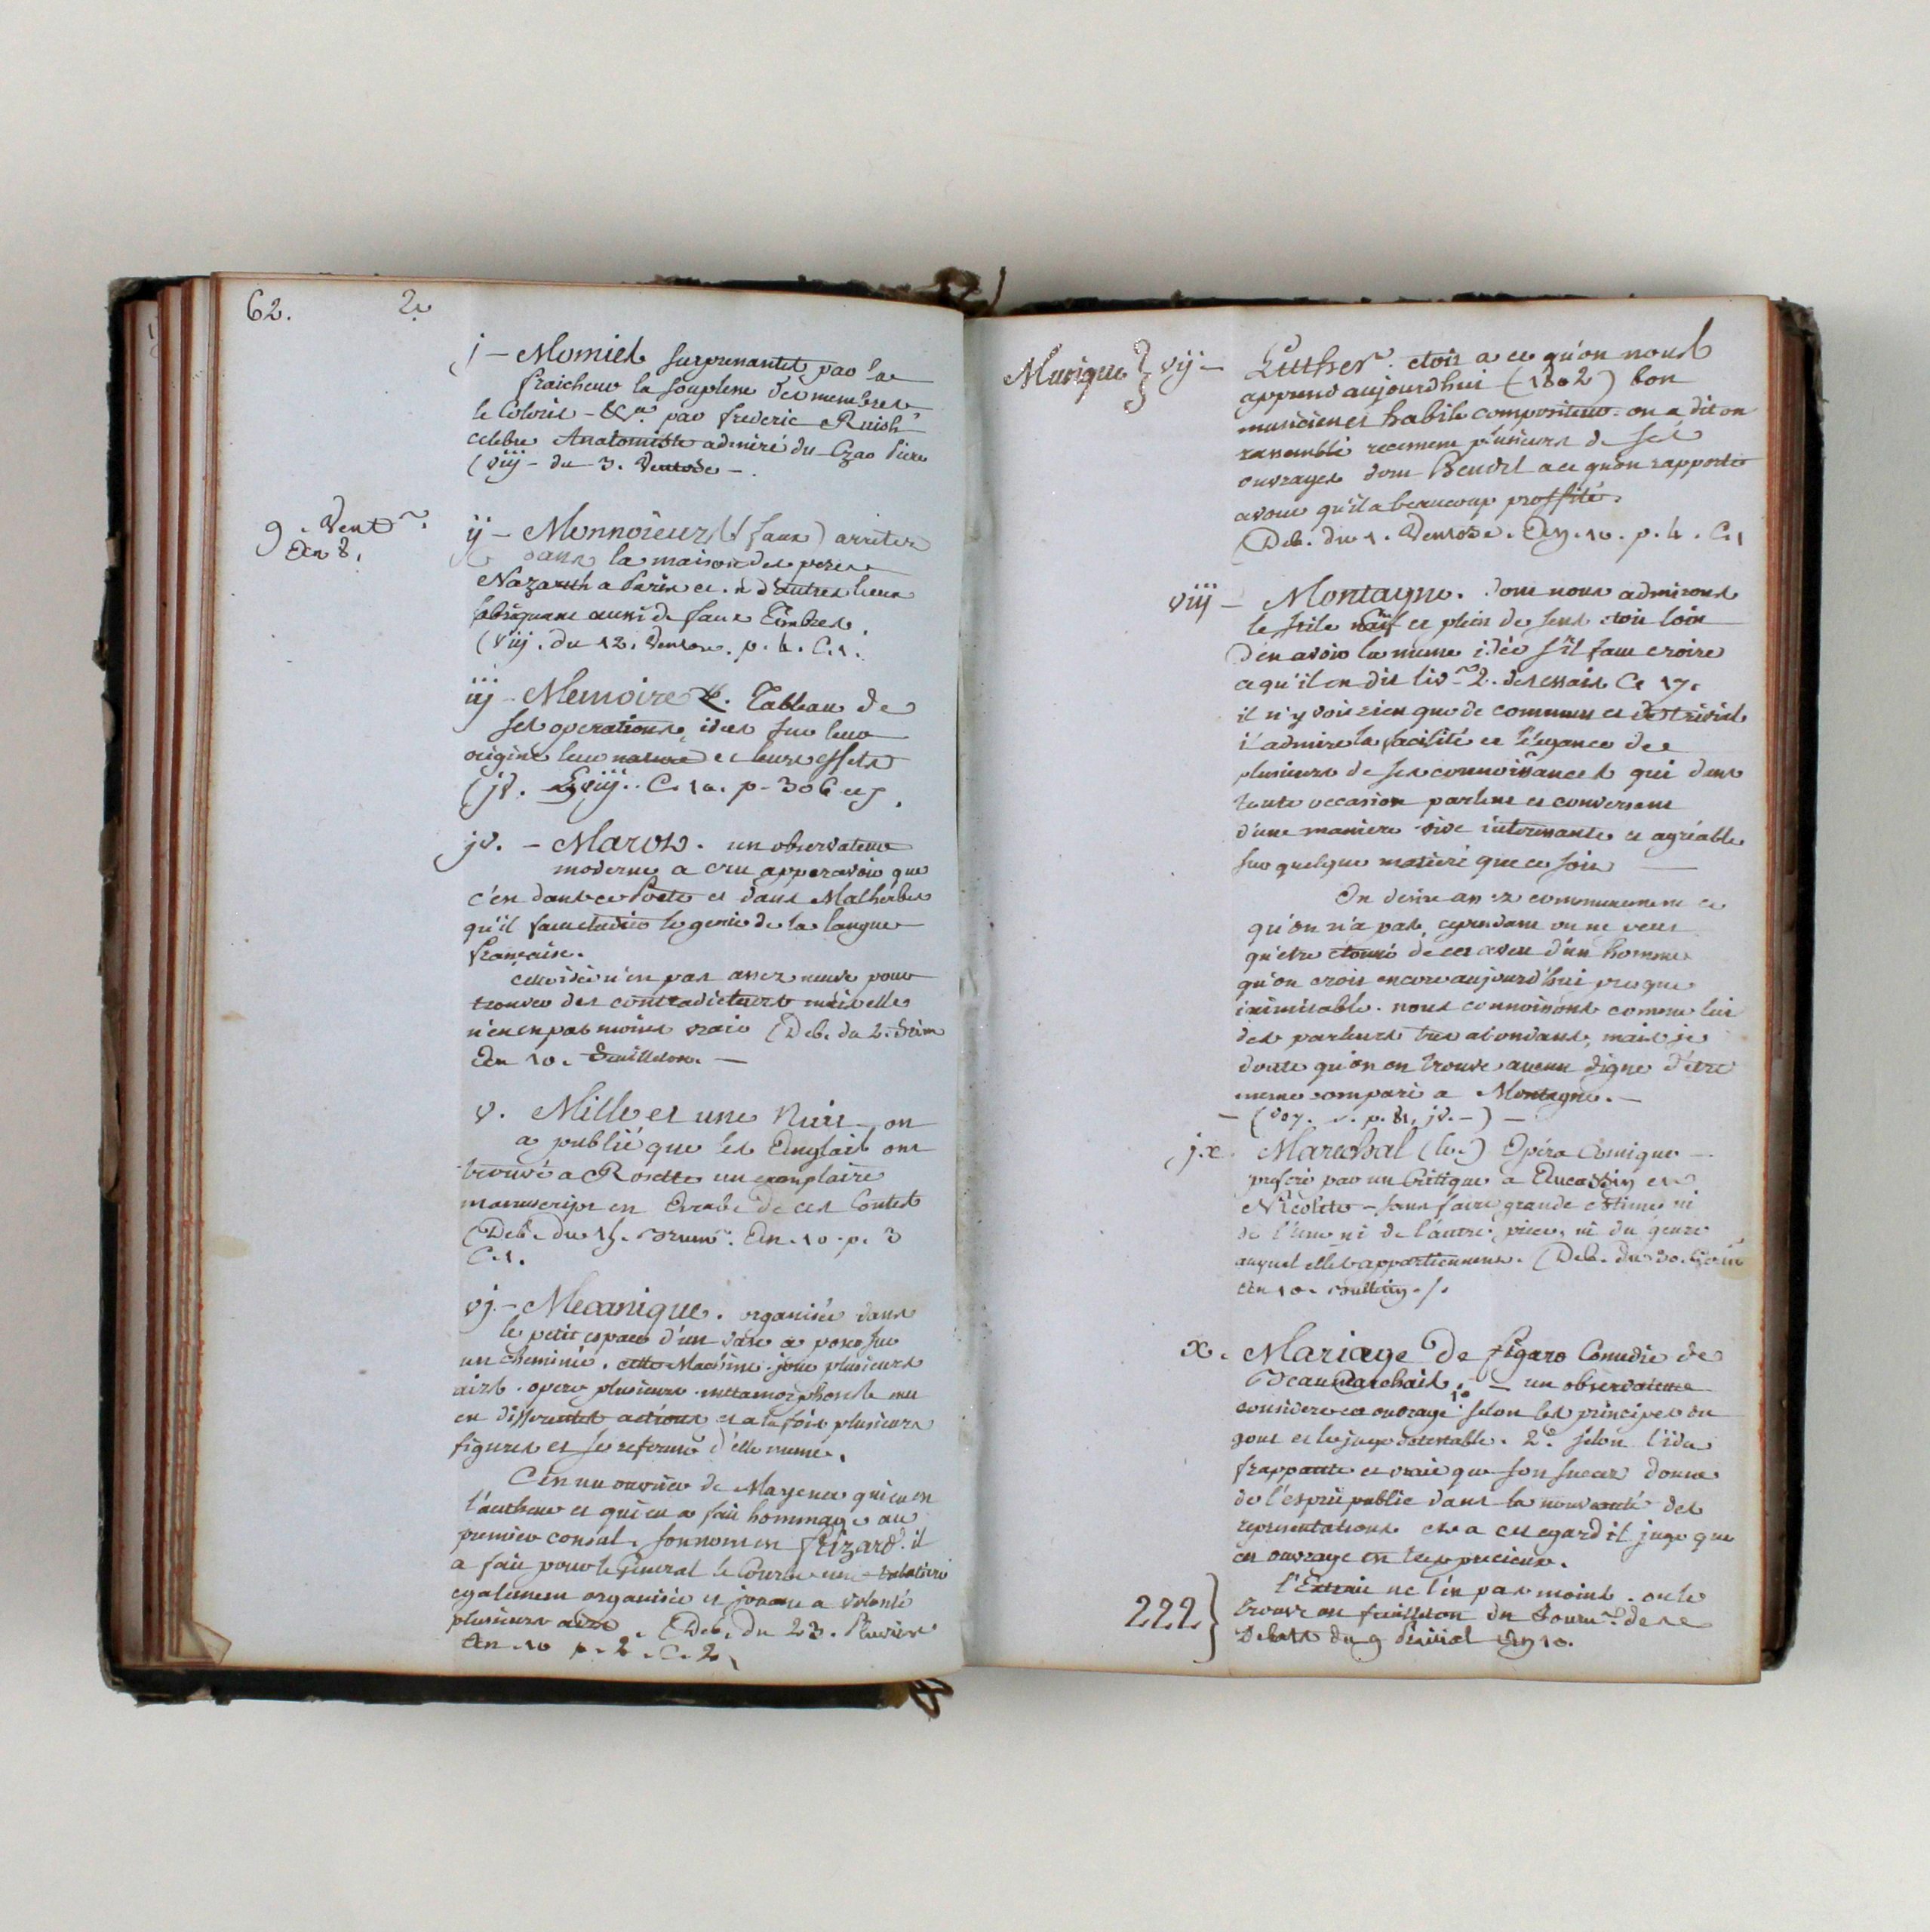 62. 2.
j – Momies surprenantes par la
fraicheur la souplesse des membres,
le Coloris – &c.a par frederic Ruish
celebre Anatomiste admiré du Czar Piere
(viij – du 3. Ventose –.
9. Vent.
An 8.
ij – Monnoieurs (faux) arretés
dans la maison des peres
Nazareth a Paris et a d'autres lieux
fabriquant aussi de faux Timbres.
(viij. du 12. Ventose. p. 4. C. 1.
iij – Memoire. Tableau de
ses operations, idées sur leur
origine leur nature et leurs effets
(jv. C. 10. p. 306 et 7.
jv. – Marot. un observateur
moderne a cru appercevoir que
c'est dans ce Poete et dans Malherbes
qu'il faut etudier le genie de la langue
française.
cette idée n'est pas assez neuve pour
trouver des contradicteurs mais elle
n'en est pas moins vraie (Deb. du 2. frim
An 10. feuilleton. –
v. Mille et une Nuit – on
a publié que les Anglais ont
trouvé a Rosette un exemplaire
manuscript en Arabe de ces Contes
(Deb. du 15. Brum. An. 10. p. 3
C. 1.
vj – Mecanique. organisée dans
le petit espace d'un vase a poser sur
un cheminée. cette Machine joue plusieurs
airs. opere plusieurs metamorphoses met
en differentes actions et a la fois plusieurs
figures et se referme d'elle meme.
C'est un ouvrier de Mayence qui en est
l'autheur et qui en a fait hommage au
premier consul. son nom est frizard. il
a fait pour le General le Courbe une tabatiere
egalement organisée et jouant a volonté
plusieurs airs. (Deb. du 23. Pluviose
An. 10 p. 2. C. 2.
Musique } vij – Luther. etoit a ce qu'on nous
apprend aujourdhui (1802) bon
musicien et habile compositeur. on a dit on
rassemblé recemment plusieurs de ses
ouvrages dont Hendel a ce qu'on rapporte
avoue qu'il a beaucoup proffité.
(Deb. du 1. Ventose. An. 10. p. 4. C. 1
viij – Montagne. dont nous admirons
le stile naïf et plein de sens etoit loin
d'en avoir la meme idée s'il faut croire
ce qu'il en dit liv. 2. des essais C. 17.
il n'y voit rien que de commun et de trivial
il admire la facilité et l'elegance de
plusieurs de ses connoissances qui dans
toute occasion parlent et conversent
d'une maniere vive interessante et agréable
sur quelque matiere que ce soit —
On desire assez communement ce
qu'on n'a pas, cependant on ne peut
qu'etre etonné de cet aveu d'un homme
qu'on croit encore aujourd'hui presque
inimitable. nous connoissons comme lui
des parleurs tres abondans, mais je
doute qu'on en trouve aucun digne d'etre
meme comparé a Montagne. –
– (voy. p. 81, jv. –) –
jx. Marechal (le.) Opéra Comique –
preferé par un Critique a Aucassin et
Nicolete – sans faire grande estime ni
de l'une ni de l'autre piece, ni du genre
auquel elles appartiennent. (Deb. du 30.
An 10.
x. Mariage de figaro Comedie de
Beaumarchais. – un observateur
considere cet ouvrage 1o. selon les principes du
gout et le juge detestable. 2o. selon l'idée
frappante et vraie que son succez donne
de l'esprit public dans la nouveauté des
representations et a cet egard il juge que
cet ouvrage est tres precieux.
222} l'Extrait ne l'est pas moins. on le
trouve au feuilleton du Journ. de
Debats du 9 Prairial An 10.